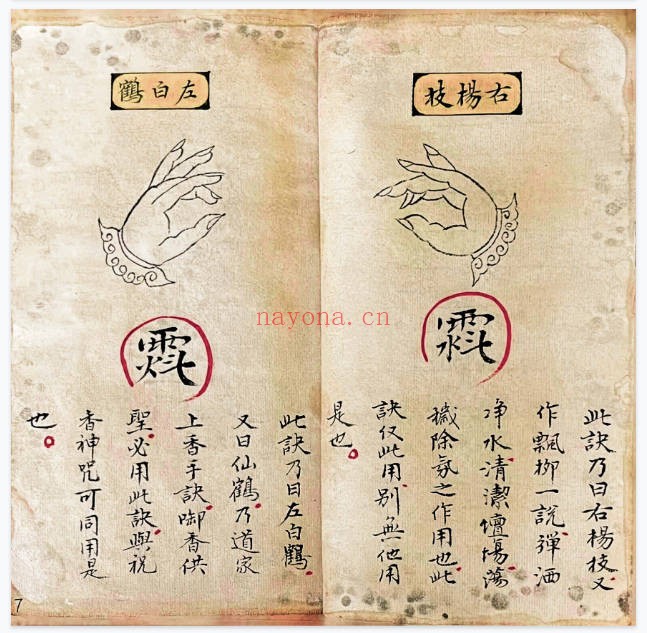 右楊枝
此訣乃曰右楊枝又
作飄柳一說彈洒
净水清潔壇場蕩
穢除氛之作用也此
訣仅此用别無他用
是也。
左白鶴
此訣乃曰左白鶴
又曰仙鶴乃道家
上香手訣啣香供
聖必用此訣與祝
香神咒可同用是
也。
7
nayona.cn